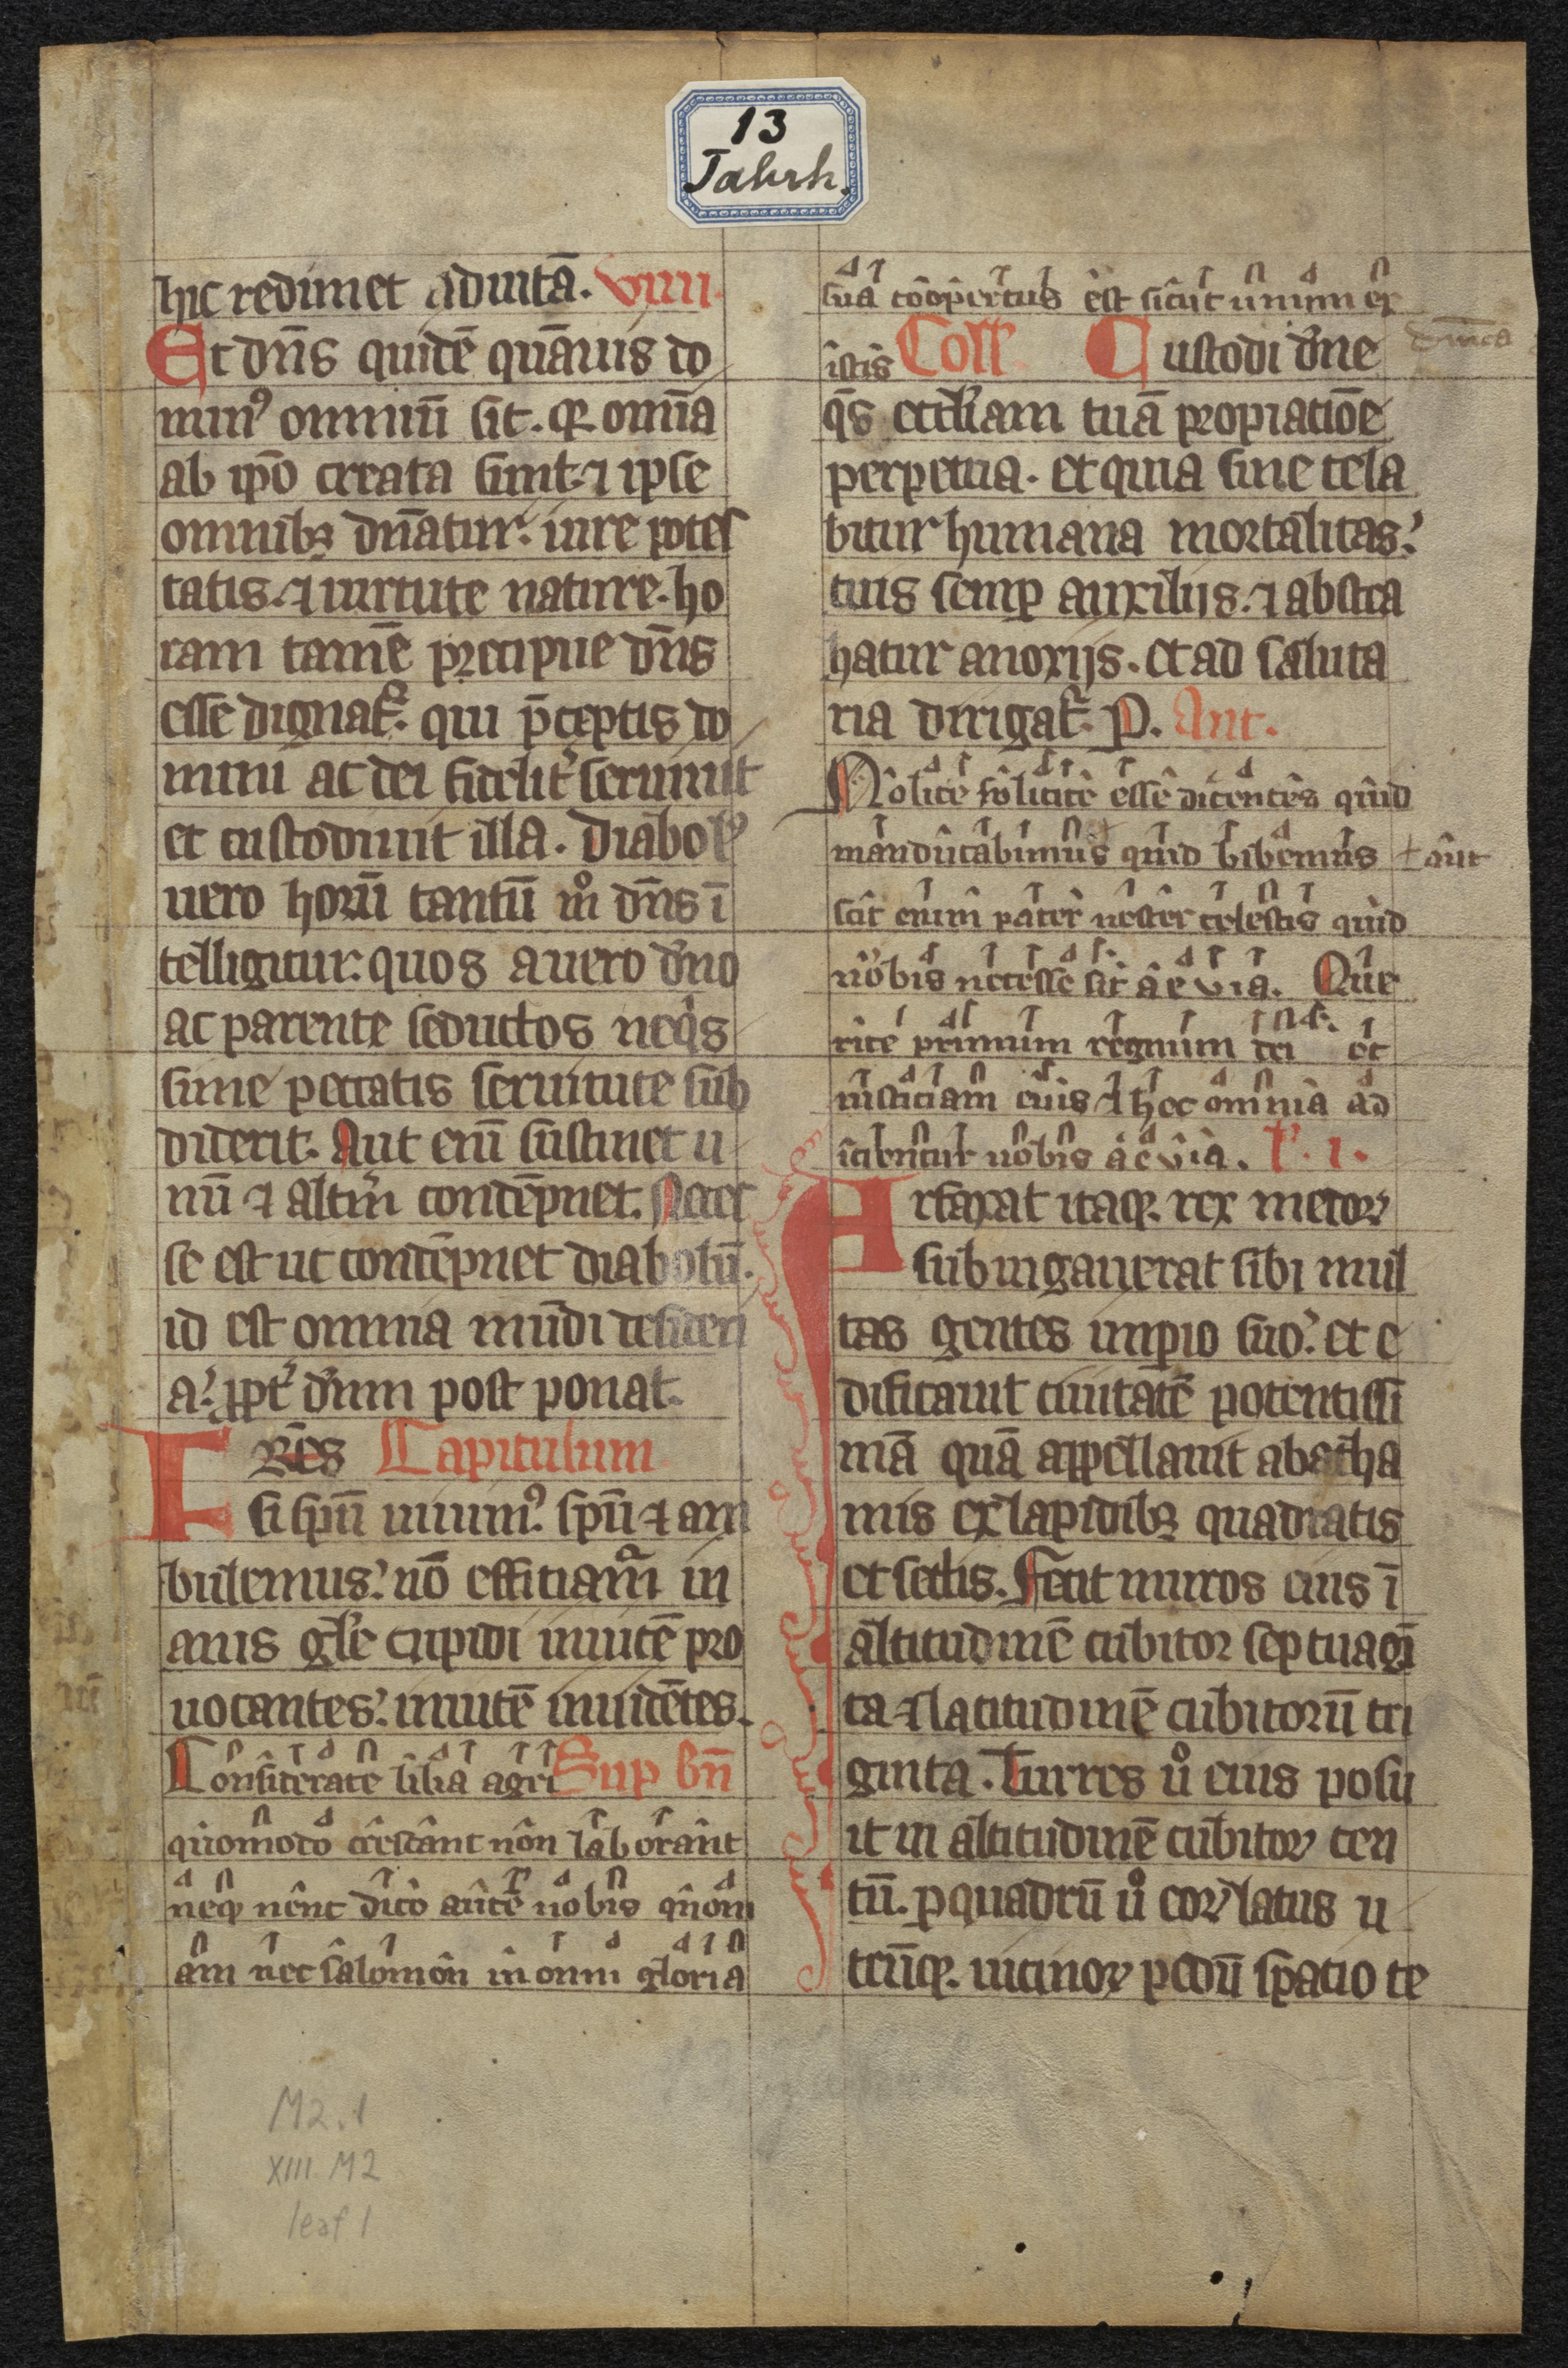 13
Jahrh.
hic redimet ad uitā. viiii.
Et dn̄s quidē quāuis do
min⁹ omniū sit. q̄ om̄ia
ab ip̄o creata sunt. ⁊ ipse
omnibꝫ dn̄atur. iure potes
tatis. ⁊ uirtute nature. ho
rum tamē precipue dn̄s
esse dignat᷑. qui p̄ceptis do
mini ac dei fidelit᷑ seruiunt
et custodiunt illa. Diabol⁹
uero horū tantū m̊ dn̄s ī
telligitur. quos a uero dn̄o
ac parente seductos neq̄s
sime peccatis seruitute sub
diderit. Aut enī sustinet u
nū ⁊ altm̄ contēpnet. Neces
se est ut contēpnet diabolū.
id est omnia mūdi desideri
a. ꝓpt᷑ dn̄m post ponat.
FRēs Capitulum
si spū uiuim⁹. spū ⁊ am
bulemus. nō efficiam᷑ in
anis gl̄e cupidi inuicē pro
uocantes. inuicē inuidētes.
Considerate lilia agri Sup bn̄
quomodo crescunt non laborant
neqꝫ nent dico autē uobis qm̄
am nec salomon in omni gloria
sua coopertus est sicut unum ex
istis Coll̄. Custodi dn̄e
q̄s eccl̄iam tuā propiatiōe
perpetua. et quia sine te la
bitur humana mortalitas.
tuis semꝑ auxilijs. ⁊ abstra
hatur a noxijs. et ad saluta
ria dirigat᷑. P. Ant.
Nolite solicite esse dicentes quid
manducabimus quid bibemus + aut
scit enim pater uester celestis quid
uobis necesse sit aevia. Que
rite primum regnum dei et
iusticiam eius ⁊ hec omnia ad
icientur uobis aevia. l᷑. i.
Arfaxat itaqꝫ. rex medoꝝ
subiugauerat sibi mul
tas gentes imꝑio suo. et e
dificauit ciuitatē potentissi
mā quā appellauit abatha
nis ex lapidibꝫ quadratis
et sectis. Fecit muros eius ī
altitudinē cubitor septuagī
ta ⁊ latitudinē cubitorū tri
ginta. Turres ů eius posu
it in altitudinē cubitoꝝ cen
tū. ꝑ quadrū ů eoꝝ latus u
trūqꝫ. uicinoꝝ pedū spatio te
M2.1
XIII. M2
leaf 1